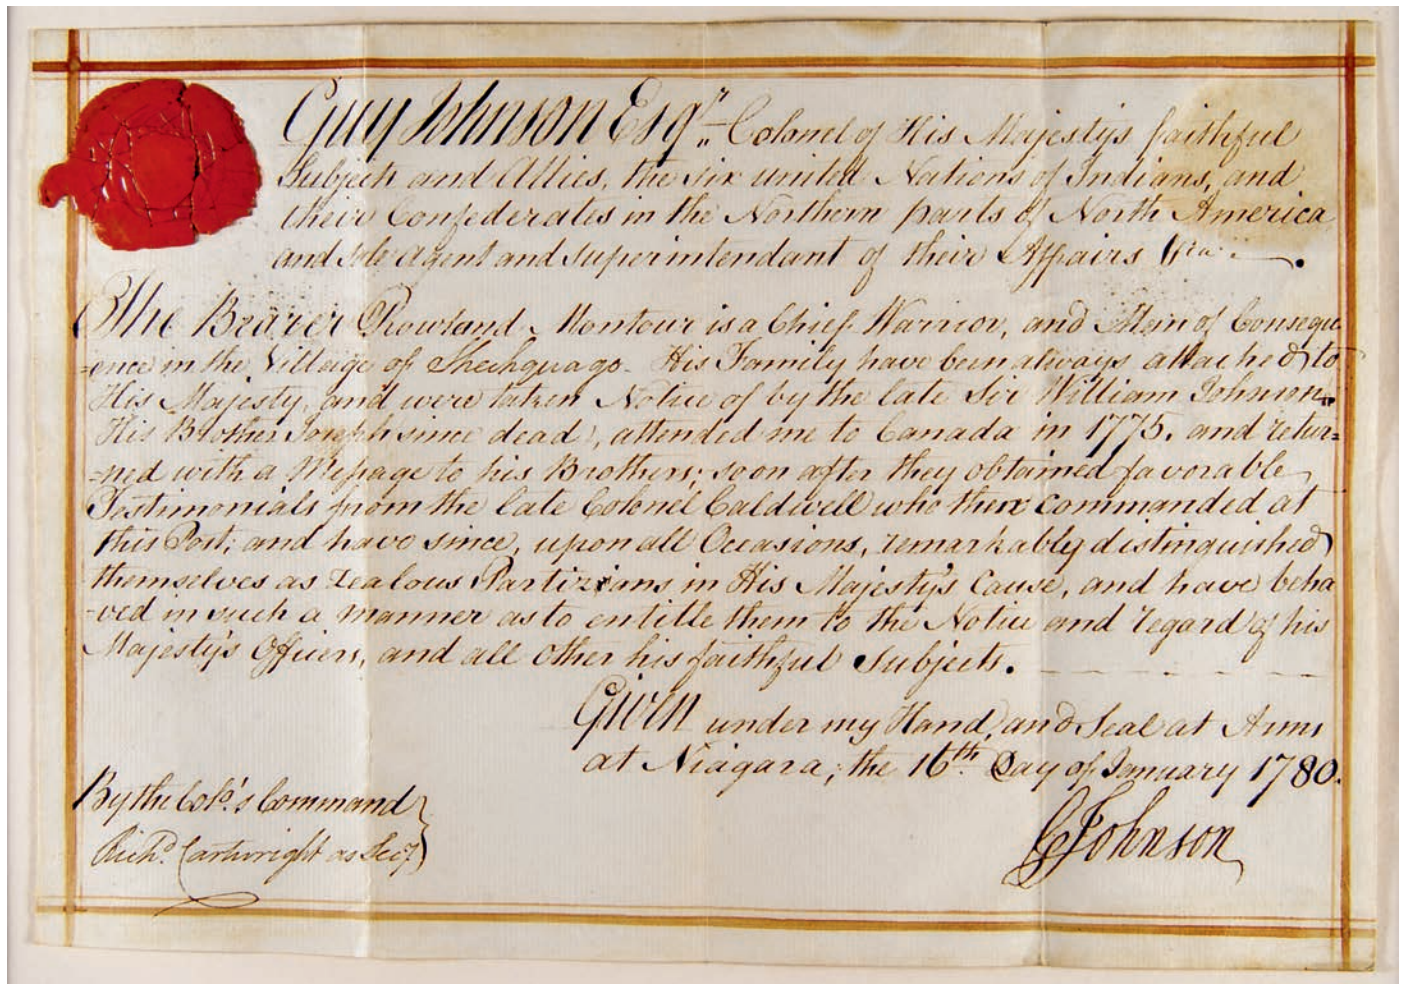 Guy Johnson Esqr. Colonel of His Majestys faithful
Subjects and Allies, the six united Nations of Indians, and
their Confederates in the Northern parts of North America
and sole Agent and Superintendant of their Affairs &ca.
The Bearer Rowland Montour is a Chief Warrior, and Man of Consequ
=ence in the Village of Shechquago. His Family have been always attached to
His Majesty, and were taken Notice of by the late Sir William Johnson.
His Brother Joseph since dead, attended me to Canada in 1775. and retur=
=ned with a Message to his Brothers; soon after they obtained favorable
Testimonials from the late Colonel Caldwell who then commanded at
this Post; and have since, upon all Occasions, remarkably distinguished
themselves as zealous Partizans in His Majesty's Cause, and have beha
=ved in such a manner as to entitle them to the Notice and regard of his
Majesty's Officers, and all other his faithful Subjects.
Given under my Hand, and Seal at Arms
at Niagara, the 16th. Day of January 1780.
By the Colo.'s Command
Richd. Cartwright as Secy
GJohnson